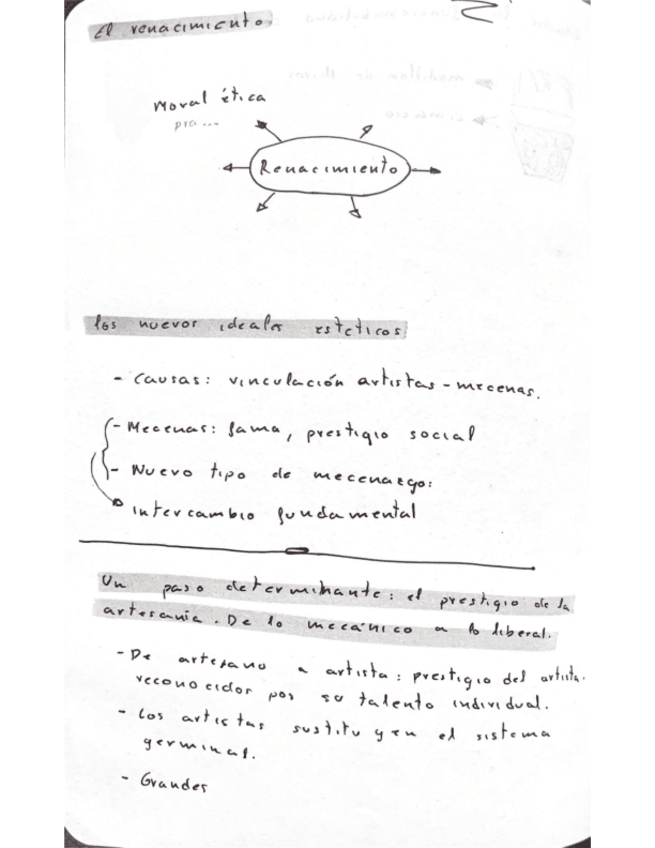 El renacimiento.
Moral ética
pra...
Renacimiento
los nuevos ideales esteticos
- Causas: vinculación artistas - mecenas.
- Mecenas: fama, prestigio social
- Nuevo tipo de mecenazgo:
intercambio fundamental
Un paso determinante: el prestigio de la
artesanía. De lo mecánico a lo liberal.
- De artesano a artista: prestigio del artista.
reconocidos por su talento individual.
- Los artistas sustituyen el sistema
germinal.
- Grandes